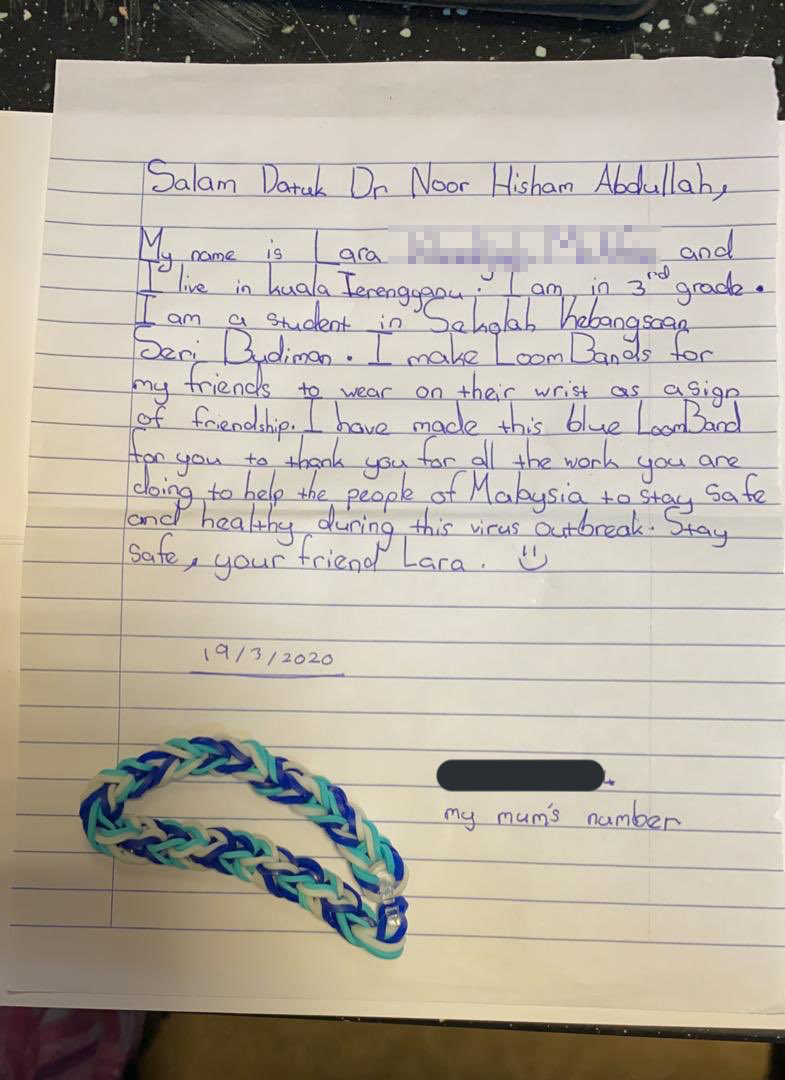 Salam Datuk Dr Noor Hisham Abdullah,
My name is Lara and
I live in Kuala Terengganu. I am in 3rd grade.
I am a student in Sekolah Kebangsaan
Seri Budiman. I make LoomBands for
my friends to wear on their wrist as a sign
of friendship. I have made this blue LoomBand
for you to thank you for all the work you are
doing to help the people of Malaysia to stay safe
and healthy during this virus outbreak. Stay
safe, your friend Lara.
19/3/2020
my mum's number